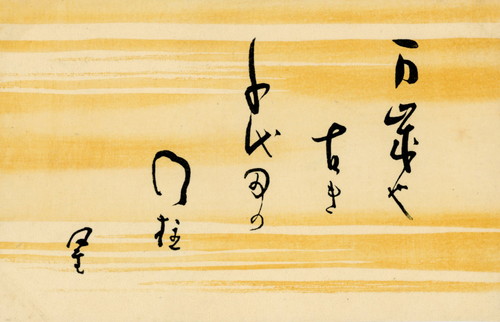 万歳や
古き
千代田の
門柱